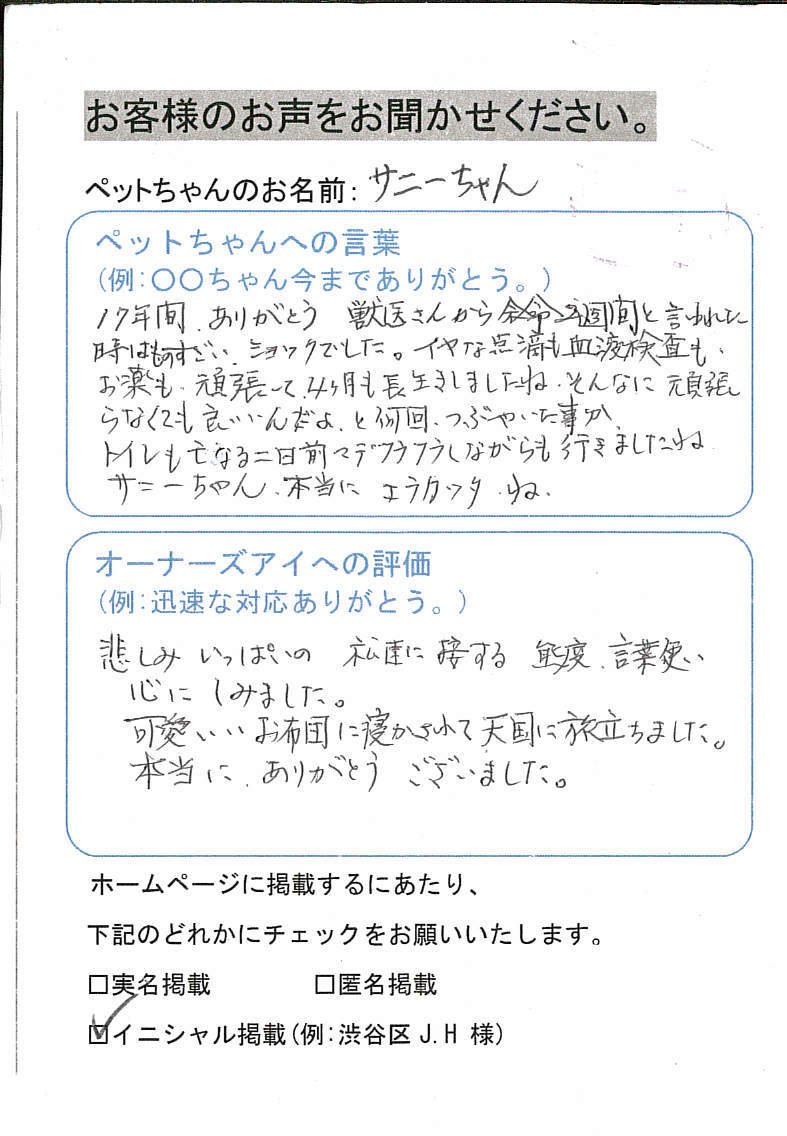 お客様のお声をお聞かせください。
ペットちゃんのお名前：サニーちゃん
ペットちゃんへの言葉
(例：〇〇ちゃん今までありがとう。)
17年間、ありがとう 獣医さんから余命 週間と言われた
時はものすごい、ショックでした。イヤな点滴も血液検査も、
お薬も、頑張って、4ヶ月も長生きしましたね、そんなに頑張
らなくても良いいんだよ、と何回、つぶやいた事か、
トイレも亡なる二日前マデフラフラしながらも行きましたね
サニーちゃん、本当に エラカッタ、ね、
オーナーズアイへの評価
(例：迅速な対応ありがとう。)
悲しみ いっぱいの 私達に 接する 態度、言葉使い
心に しみました。
可愛いいお布団に寝かされて天国に旅立ちました。
本当に、ありがとう ございました。
ホームページに掲載するにあたり、
下記のどれかにチェックをお願いいたします。
□実名掲載 □匿名掲載
☑イニシャル掲載(例：渋谷区 J.H 様)